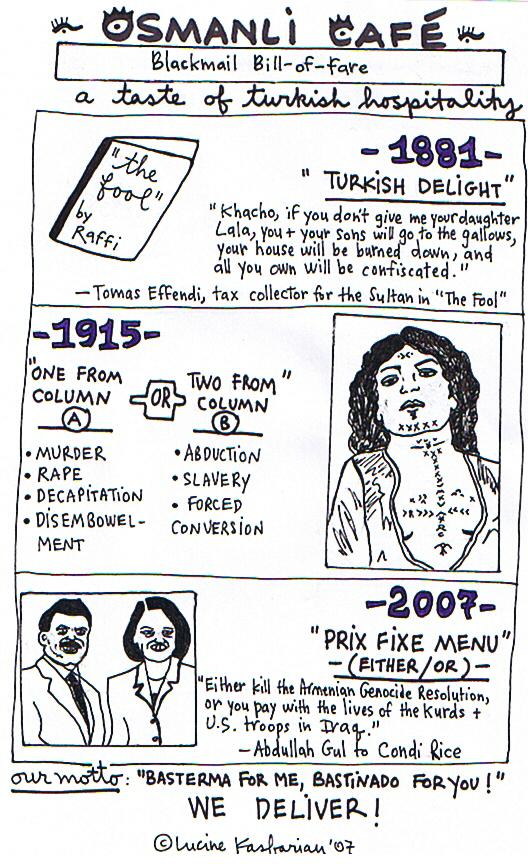 OSMANLI CAFÉ
Blackmail Bill-of-Fare
a taste of turkish hospitality
"the
fool"
by
Raffi
-1881-
"TURKISH DELIGHT"
"Khacho, if you don't give me your daughter
Lala, you + your sons will go to the gallows,
your house will be burned down, and
all you own will be confiscated."
—Tomas Effendi, tax collector for the Sultan in "The Fool"
-1915-
"ONE FROM
COLUMN
A
OR
TWO FROM"
COLUMN
B
• MURDER
• RAPE
• DECAPITATION
• DISEMBOWEL-
MENT
• ABDUCTION
• SLAVERY
• FORCED
CONVERSION
-2007-
"PRIX FIXE MENU"
-(EITHER/OR)-
"Either kill the Armenian Genocide Resolution,
or you pay with the lives of the Kurds +
U.S. troops in Iraq."
—Abdullah Gul to Condi Rice
our motto: "BASTERMA FOR ME, BASTINADO FOR YOU!"
WE DELIVER!
©Lucine Kasbarian '07